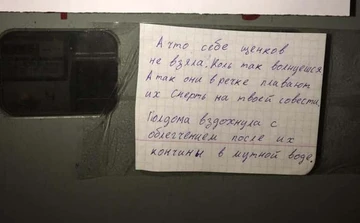 А что себе щенков
не взяла. Коль так волнуешся
А так они в речке плавают
их смерть на твоей совести.
Полдома вздохнула с
облегчением после их
кончины в мутной воде.